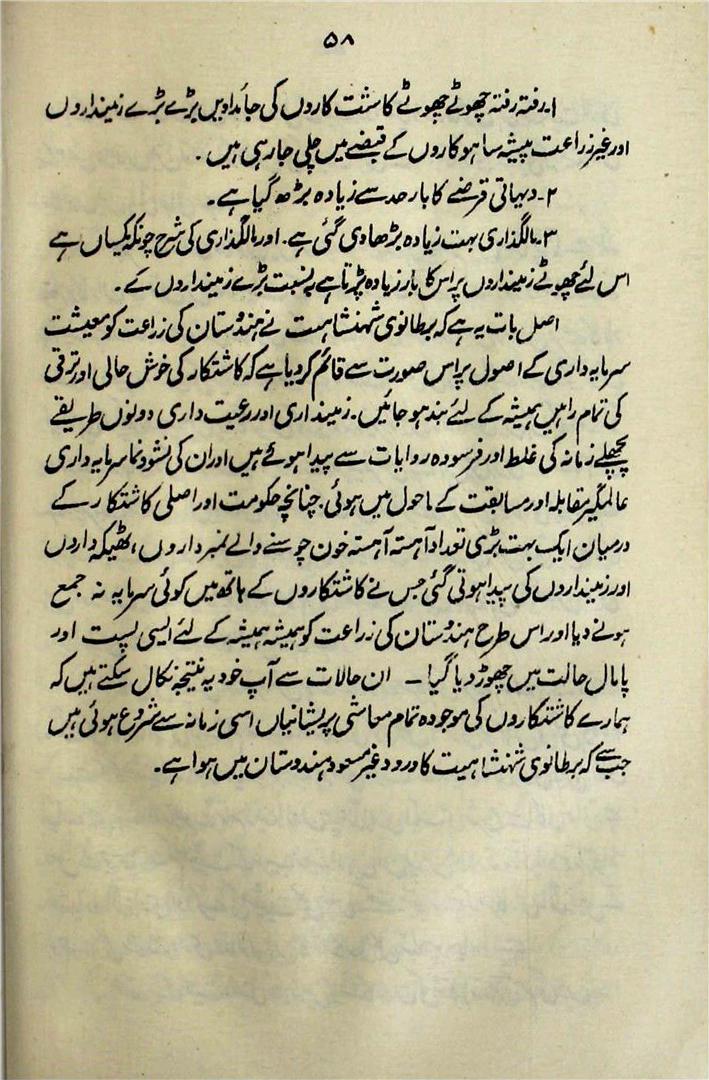 ۵۸
۱۔ رفتہ رفتہ چھوٹے چھوٹے کاشت کاروں کی جائدادیں بڑے بڑے زمینداروں
اور غیر زراعت پیشہ ساہوکاروں کے قبضے میں چلی جا رہی ہیں۔
۲۔ دیہاتی قرضے کا بار حد سے زیادہ بڑھ گیا ہے۔
۳۔ مالگذاری بہت زیادہ بڑھا دی گئی ہے۔ اور مالگذاری کی شرح چونکہ یکساں ہے
اس لئے چھوٹے زمینداروں پر اس کا بار زیادہ پڑتا ہے بہ نسبت بڑے زمینداروں کے۔
اصل بات یہ ہے کہ برطانوی شہنشاہیت نے ہندوستان کی زراعت کو معیشت
سرمایہ داری کے اصول پر اس صورت سے قائم کر دیا ہے کہ کاشتکار کی خوش حالی اور ترقی
کی تمام راہیں ہمیشہ کے لئے بند ہو جائیں۔ زمینداری اور رعیت داری دونوں طریقے
پچھلے زمانہ کی غلط اور فرسودہ روایات سے پیدا ہوئے ہیں اور ان کی نشو و نما سرمایہ داری
عالمگیر مقابلہ اور مسابقت کے ماحول میں ہوئی۔ چنانچہ حکومت اور اصلی کاشتکار کے
درمیان ایک بہت بڑی تعداد آہستہ آہستہ خون چوسنے والے نمبرداروں، ٹھیکہ داروں
اور زمینداروں کی پیدا ہوتی گئی جس نے کاشتکاروں کے ہاتھ میں کوئی سرمایہ نہ جمع
ہونے دیا اور اس طرح ہندوستان کی زراعت کو ہمیشہ ہمیشہ کے لئے ایسی پست اور
پامال حالت میں چھوڑ دیا گیا – ان حالات سے آپ خود یہ نتیجہ نکال سکتے ہیں کہ
ہمارے کاشتکاروں کی موجودہ تمام معاشی پریشانیاں اسی زمانہ سے شروع ہوئی ہیں
جب سے کہ برطانوی شہنشاہیت کا ورود غیر مسعود ہندوستان میں ہوا ہے۔